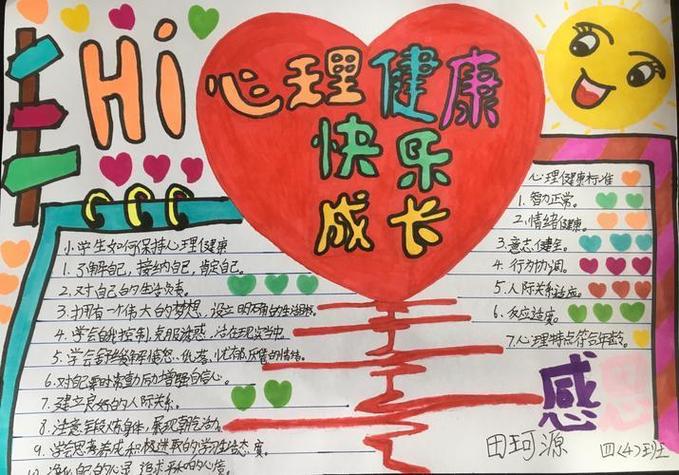 Hi
心理健康
快乐
成长
小学生如何保持心理健康
1. 了解自己，接纳自己，肯定自己。
2. 对自己的生活负责。
3. 拥有一个伟大的梦想，设立明确的生活目标。
4. 学会自我控制，克服迷惑，活在现实当中
5. 学会缓解愤怒、仇恨、忧郁的情绪。
6. 对自己要时常勤加增强自信心。
7. 建立良好的人际关系。
8. 注意锻炼身体，展现朝气活力。
9. 学会思考养成积极进取的学习生活态度。
心理健康标准
1. 智力正常。
2. 情绪健康。
3. 意志健全。
4. 行为协调。
5. 人际关系适应。
6. 反应适度。
7. 心理特点符合年龄。
感恩
田珂源
四(4)班